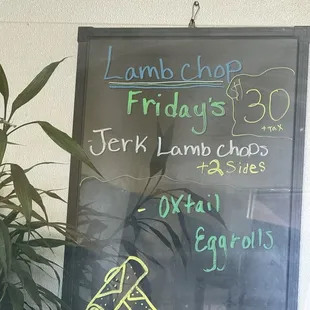 Lamb chop
Friday's
$30
+ tax
Jerk Lamb Chops
+2 Sides
- Oxtail
Eggrolls